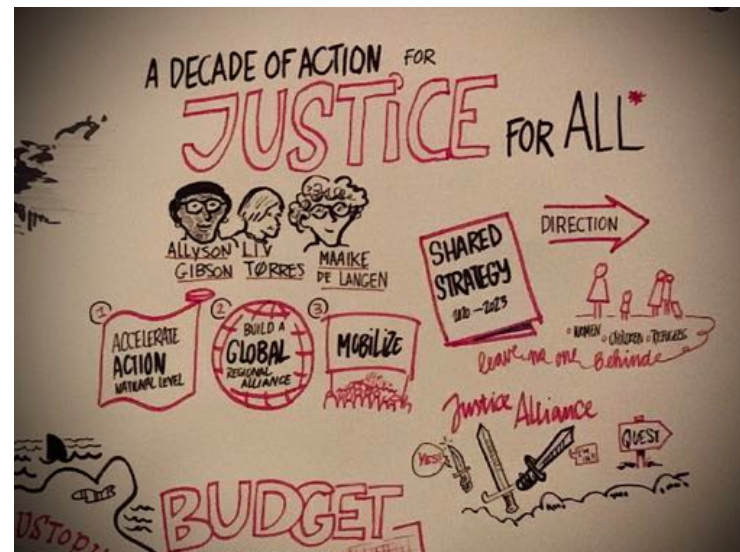 A DECADE OF ACTION FOR
JUSTICE FOR ALL*
ALLYSON
GIBSON
LIV
TØRRES
MAAIKE
DE LANGEN
SHARED
STRATEGY
2020-2023
DIRECTION
WOMEN CHILDREN REFUGEES
leave no one behinde
1
ACCELERATE
ACTION
NATIONAL LEVEL
2
BUILD A
GLOBAL
REGIONAL
ALLIANCE
3
MOBILIZE
Justice Alliance
YES!
QUEST
BUDGET